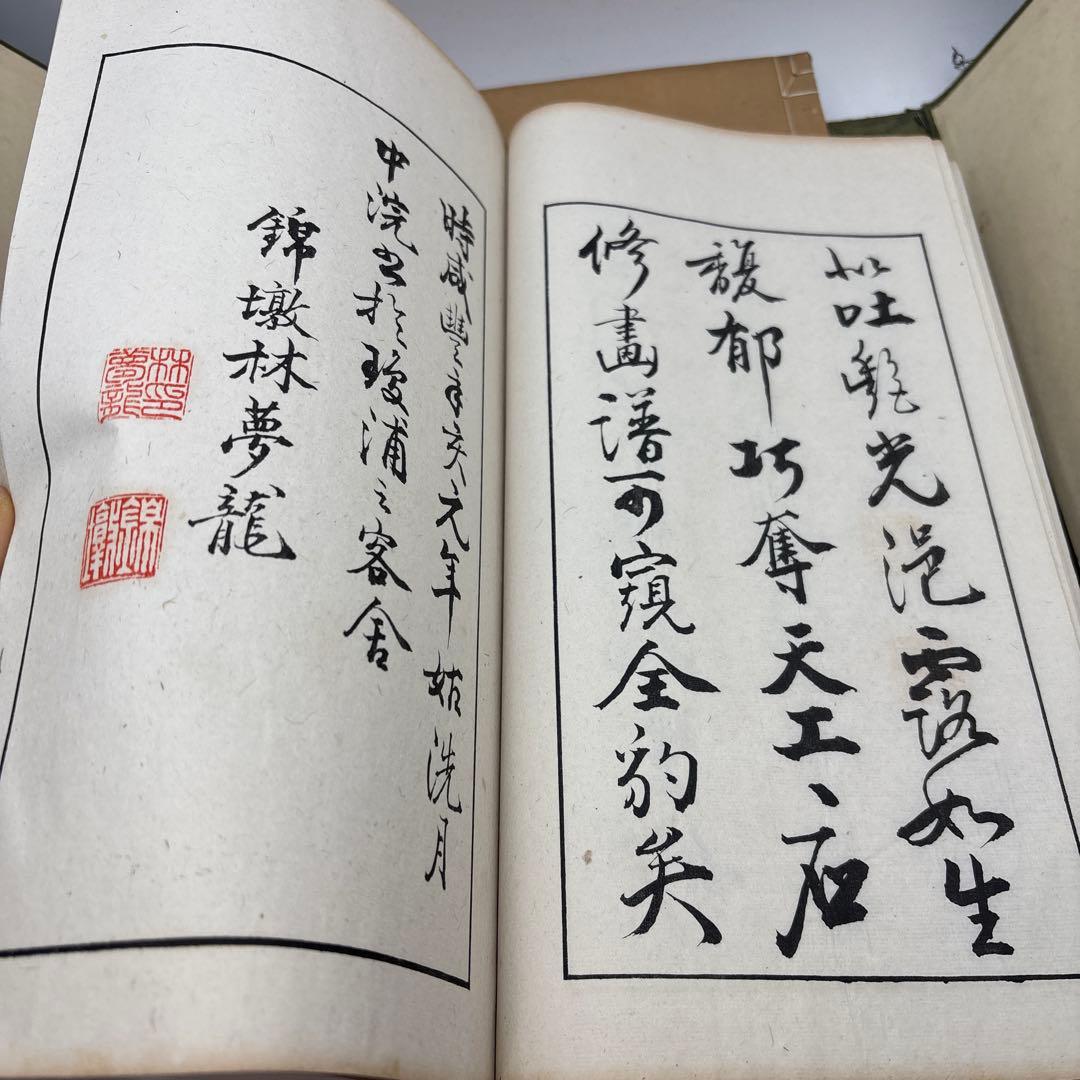 吐艶光浥露如生
馥郁巧奪天工、石
修畫譜可窺全豹矣
時咸豐辛亥元年姑洗月
中浣書於瓊浦之客舍
錦墩林夢龍
林印夢龍
錦墩